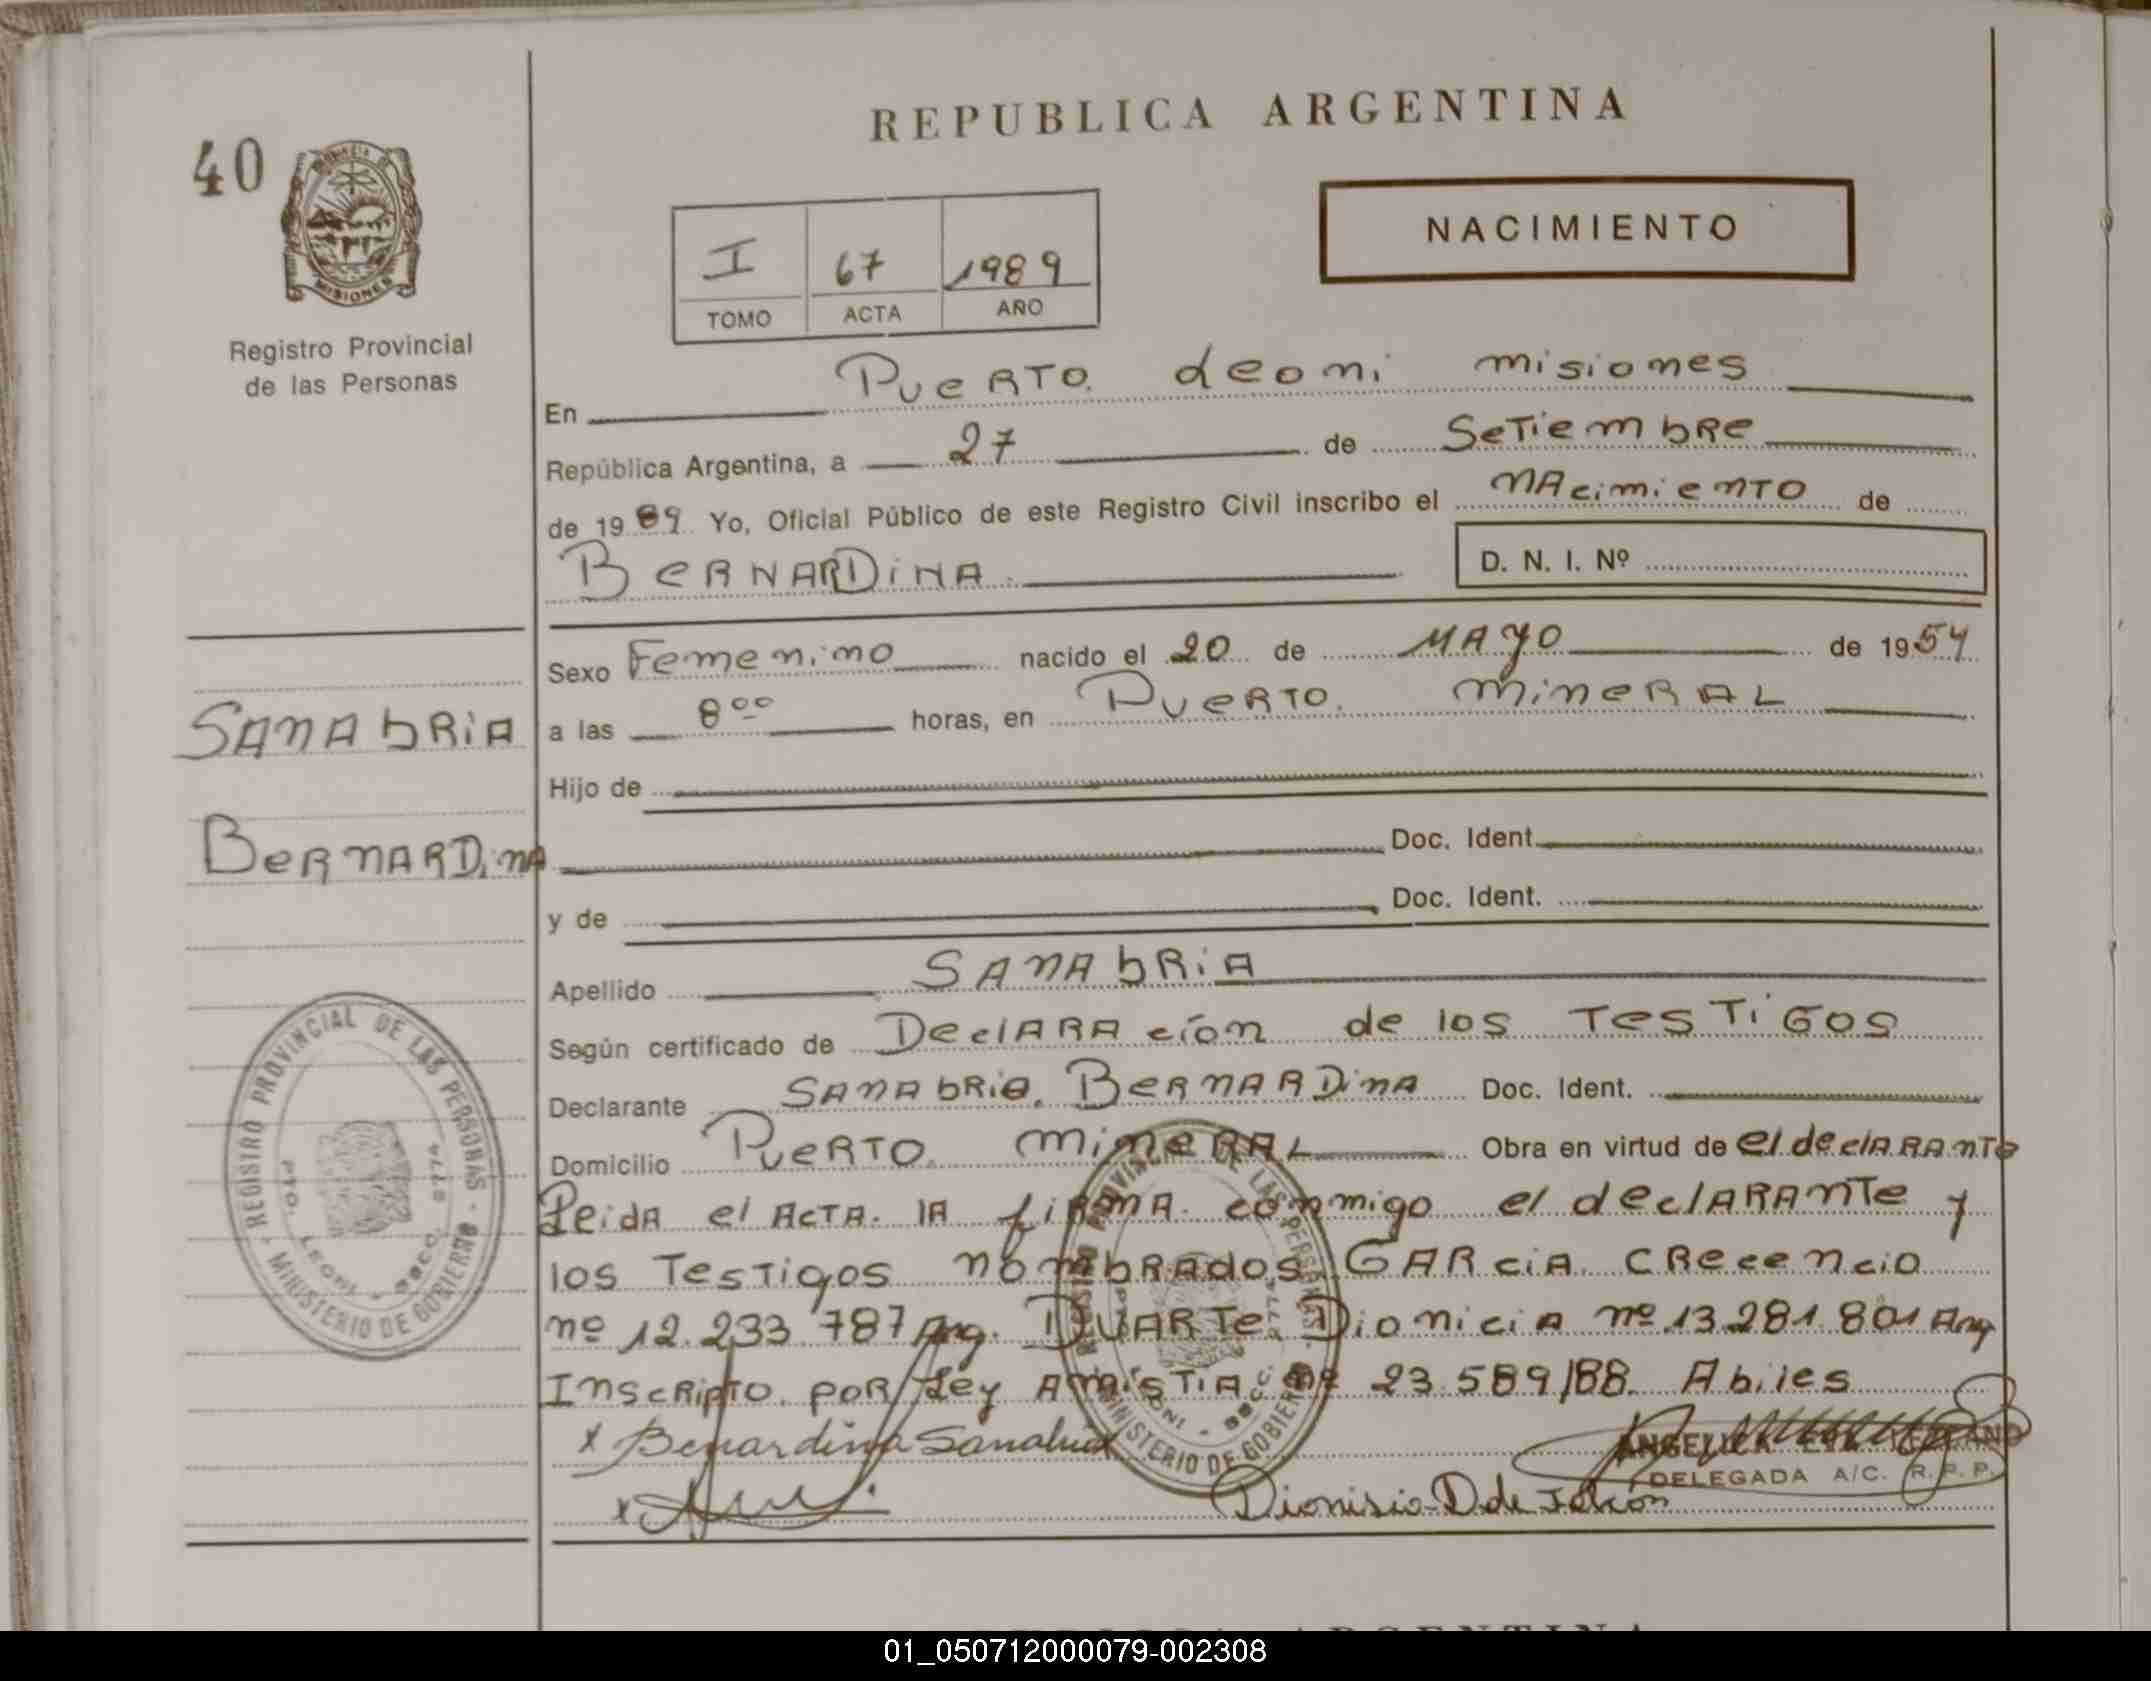 REPUBLICA ARGENTINA
40
PROVINCIA DE
MISIONES
Registro Provincial
de las Personas
I 67 1989
TOMO ACTA AÑO
NACIMIENTO
En Puerto Leoni Misiones
República Argentina, a 27 de Setiembre
de 1989 Yo, Oficial Público de este Registro Civil inscribo el nacimiento de
Bernardina
D. N. I. Nº
Sexo Femenino nacido el 20 de Mayo de 1954
a las 8 00 horas, en Puerto Mineral
Sanabria
Bernardina
Hijo de
Doc. Ident.
y de Doc. Ident.
Apellido Sanabria
Según certificado de Declaración de los Testigos
Declarante Sanabria Bernardina Doc. Ident.
Domicilio Puerto Mineral Obra en virtud de el declarante
Leida el Acta la firma conmigo el declarante y
los Testigos nombrados Garcia Crecencio
nº 12.233 787 Arg. Duarte Dionicia nº 13.281.801 Arg
Inscripto por Ley Amistia nº 23 589/88. Abiles
x Bernardina Sanabria
ANGELICA
DELEGADA A/C. R. P. P.
Dionisia D de
REGISTRO PROVINCIAL DE LAS PERSONAS
MINISTERIO DE GOBIERNO
PTO LEONI
01_050712000079-002308